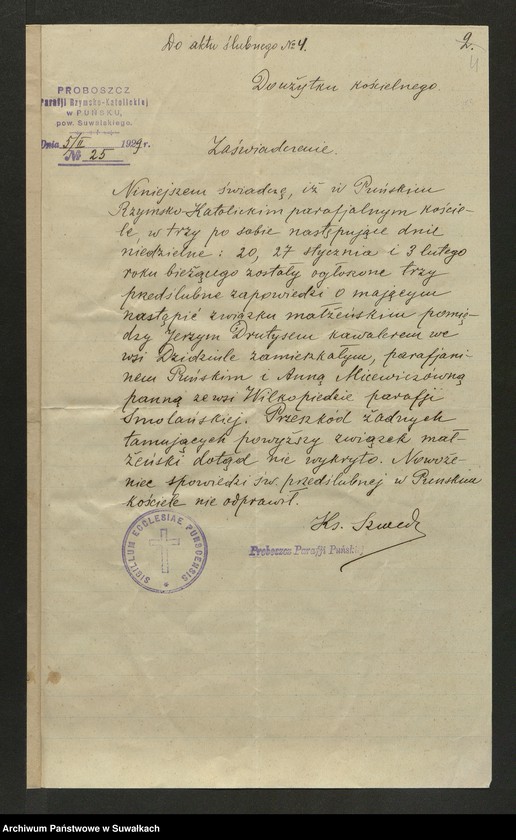 Do aktu ślubnego № 4.
2.
4
Do użytku kościelnego.
PROBOSZCZ
Parafji Rzymsko-Katolickiej
w PUŃSKU,
pow. Suwalskiego.
Dnia 5/II 1929 r.
№ 25
Zaświadczenie.
Niniejszem świadczę, iż w Puńskim
Rzymsko-Katolickim parafjalnym koście-
le, w trzy po sobie następujące dnie
niedzielne: 20, 27 stycznia i 3 lutego
roku bieżącego zostały ogłoszone trzy
przedślubne zapowiedzi o mającym
nastąpić związku małżeńskim pomię-
dzy Jerzym Drutysem kawalerem we
wsi Dzidziule zamieszkałym, parafjani-
nem Puńskim i Anną Micewiczówną
panną ze wsi Wilkopiedzie parafji
Smolańskiej. Przeszkód żadnych
tamujących powyższy związek mał-
żeński dotąd nie wykryto. Nowoże-
niec spowiedzi św. przedślubnej w Puńskim
kościele nie odprawił.
Ks. Szwed
Proboszcz Parafji Puńskiej
SIGILLUM ECCLESIAE PUNSCENSIS
Archiwum Państwowe w Suwałkach